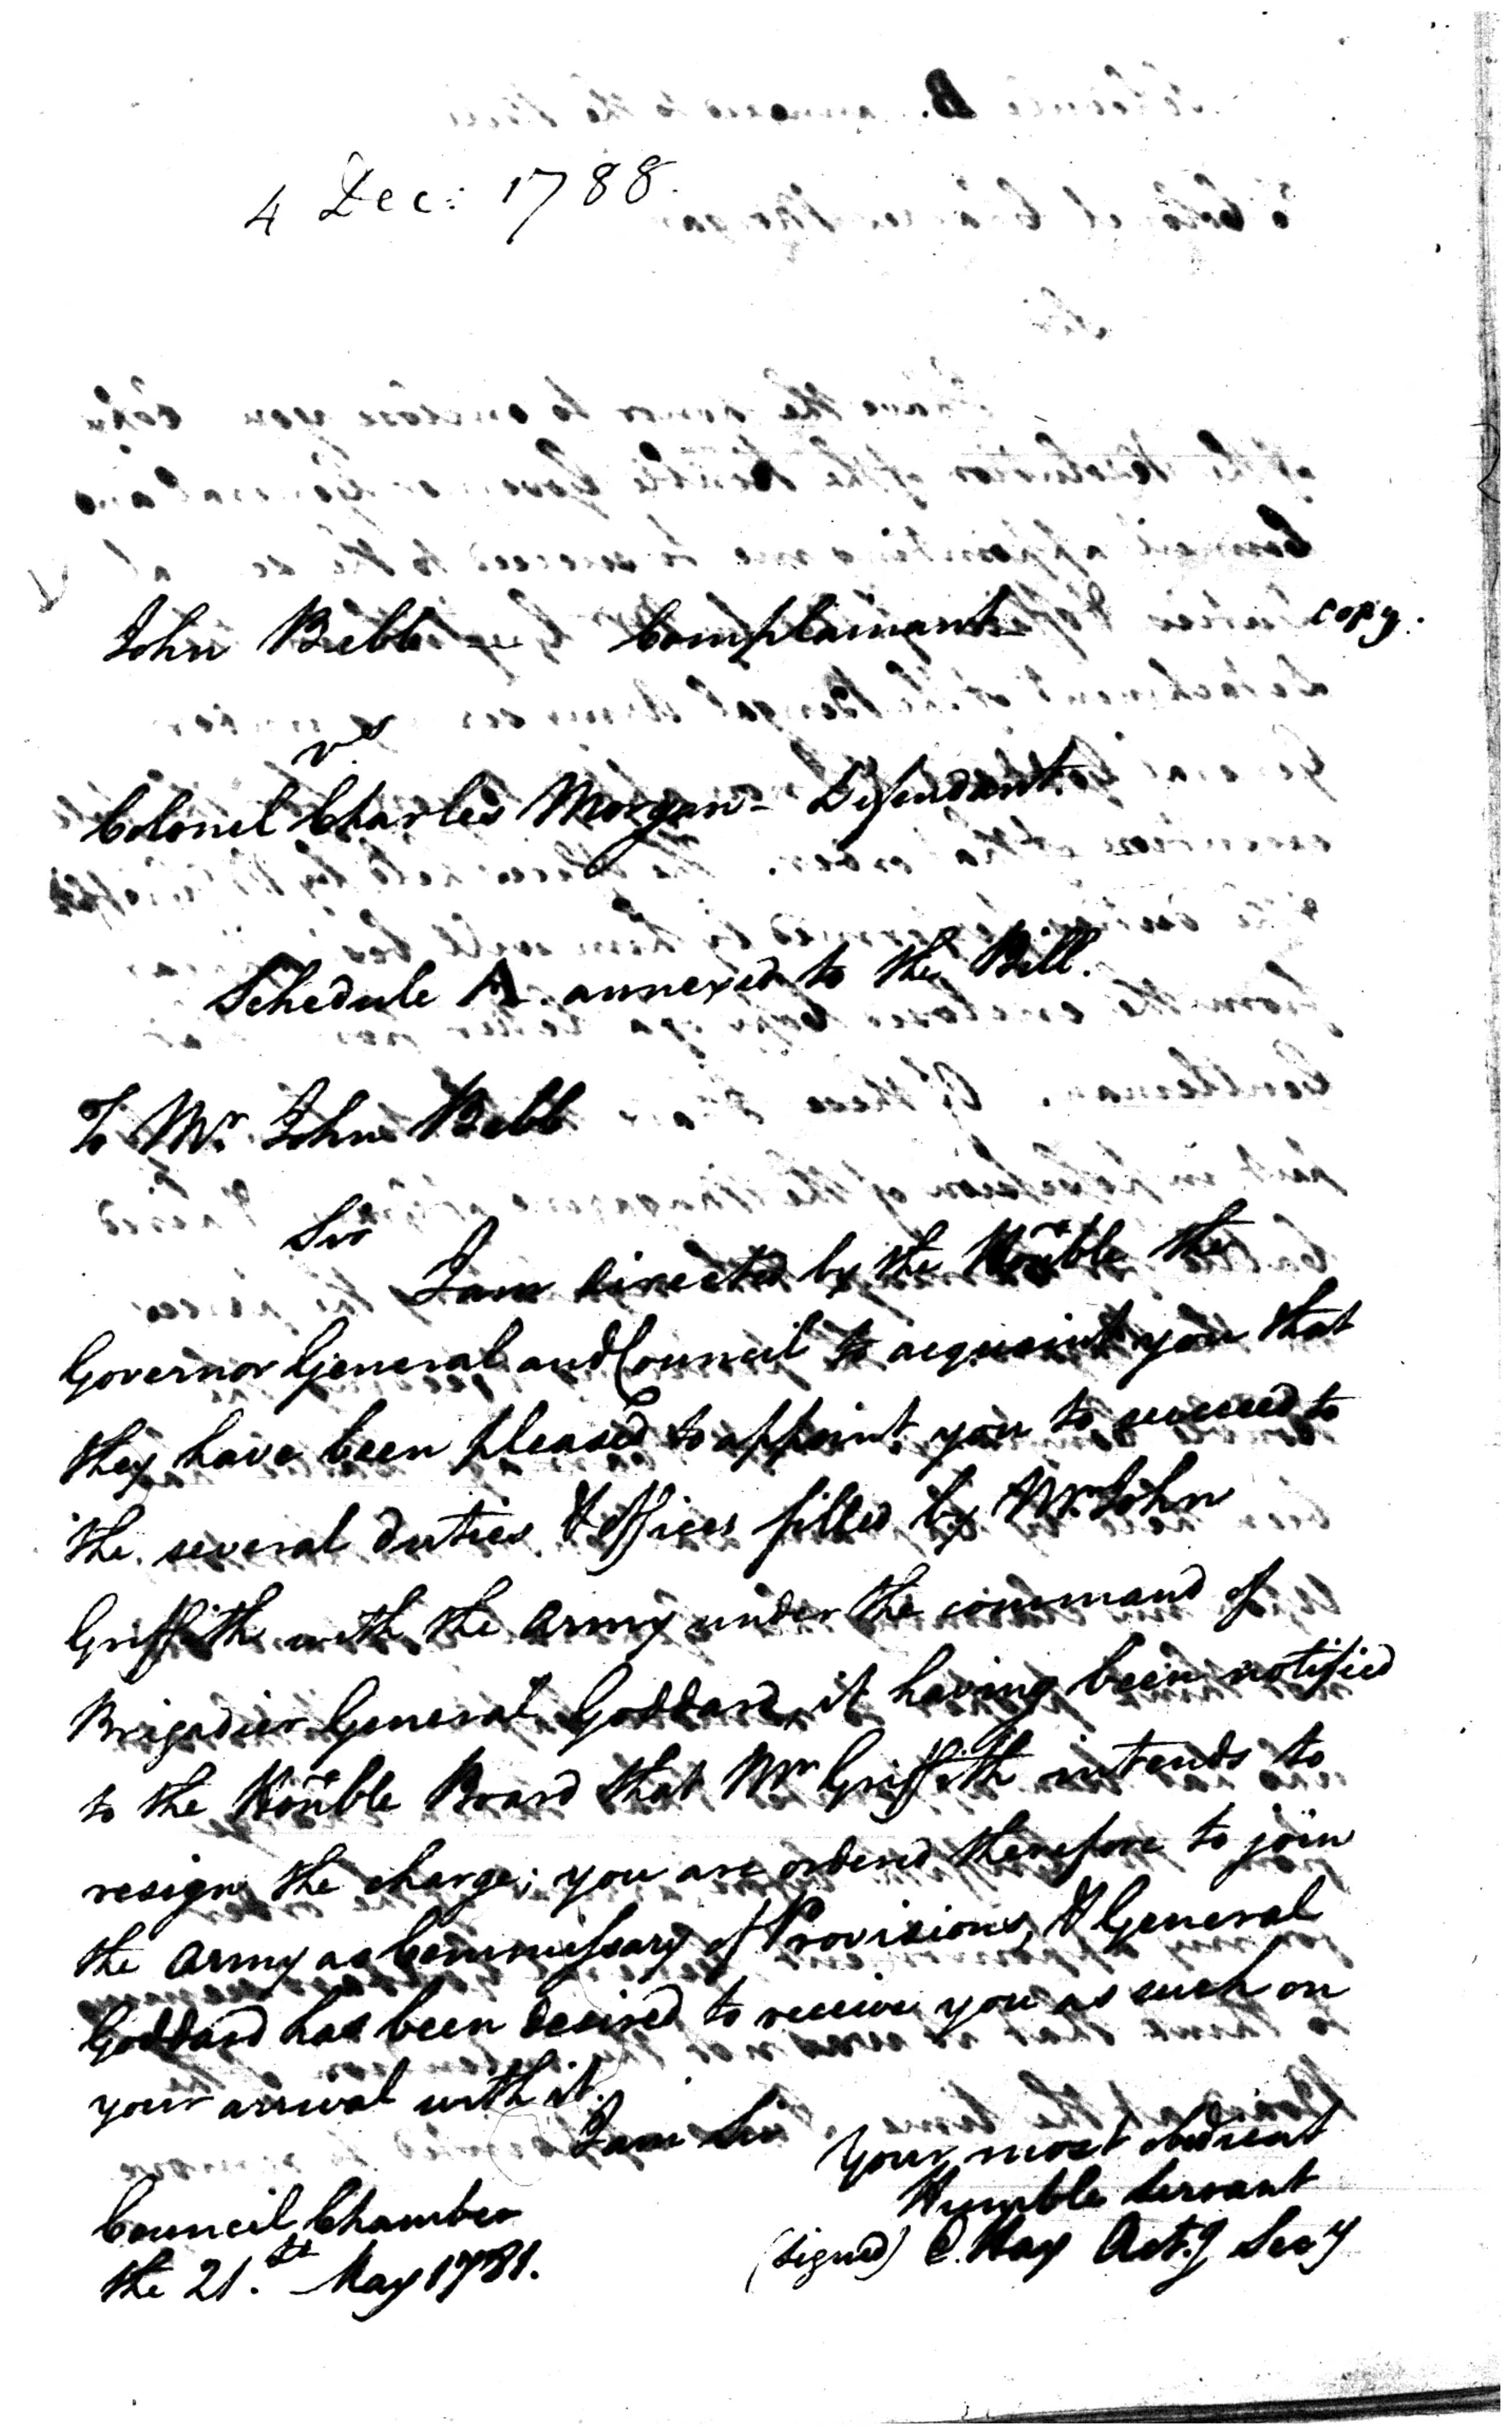 4 Dec: 1788.
John Bebb — Complainant
copy.
vs
Colonel Charles Morgan - Defendant.
Schedule A. annexed to the Bill.
To Mr. John Bebb
Sir
I am directed by the Honble the
Governor General and Council to acquaint you that
they have been pleased to appoint you to succeed to
the several duties & offices filled by Mr. John
Griffith with the Army under the command of
Brigadier General Goddard, it having been notified
to the Honble Board that Mr Griffith intends to
resign the charge; you are ordered therefore to join
the Army as Commissary of Provisions, & General
Goddard has been desired to receive you as such on
your arrival with it.
I am Sir
Your most obedient
Humble Servant
(signed) E. Hay Act.g Secy
Council Chamber
the 21.st May 1781.